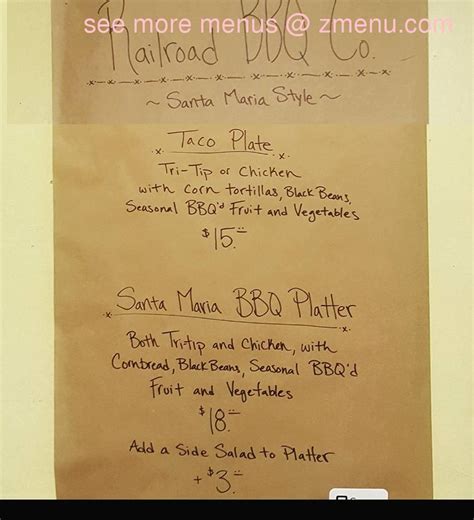 see more menus @ zmenu.com
Railroad BBQ Co.
~ Santa Maria Style ~
Taco Plate
Tri-Tip or Chicken
with Corn tortillas, Black Beans,
Seasonal BBQ'd Fruit and Vegetables
$15.
Santa Maria BBQ Platter
Both Tri-tip and Chicken, with
Cornbread, Black Beans, Seasonal BBQ'd
Fruit and Vegetables
$18.
Add a Side Salad to Platter
+ $3.